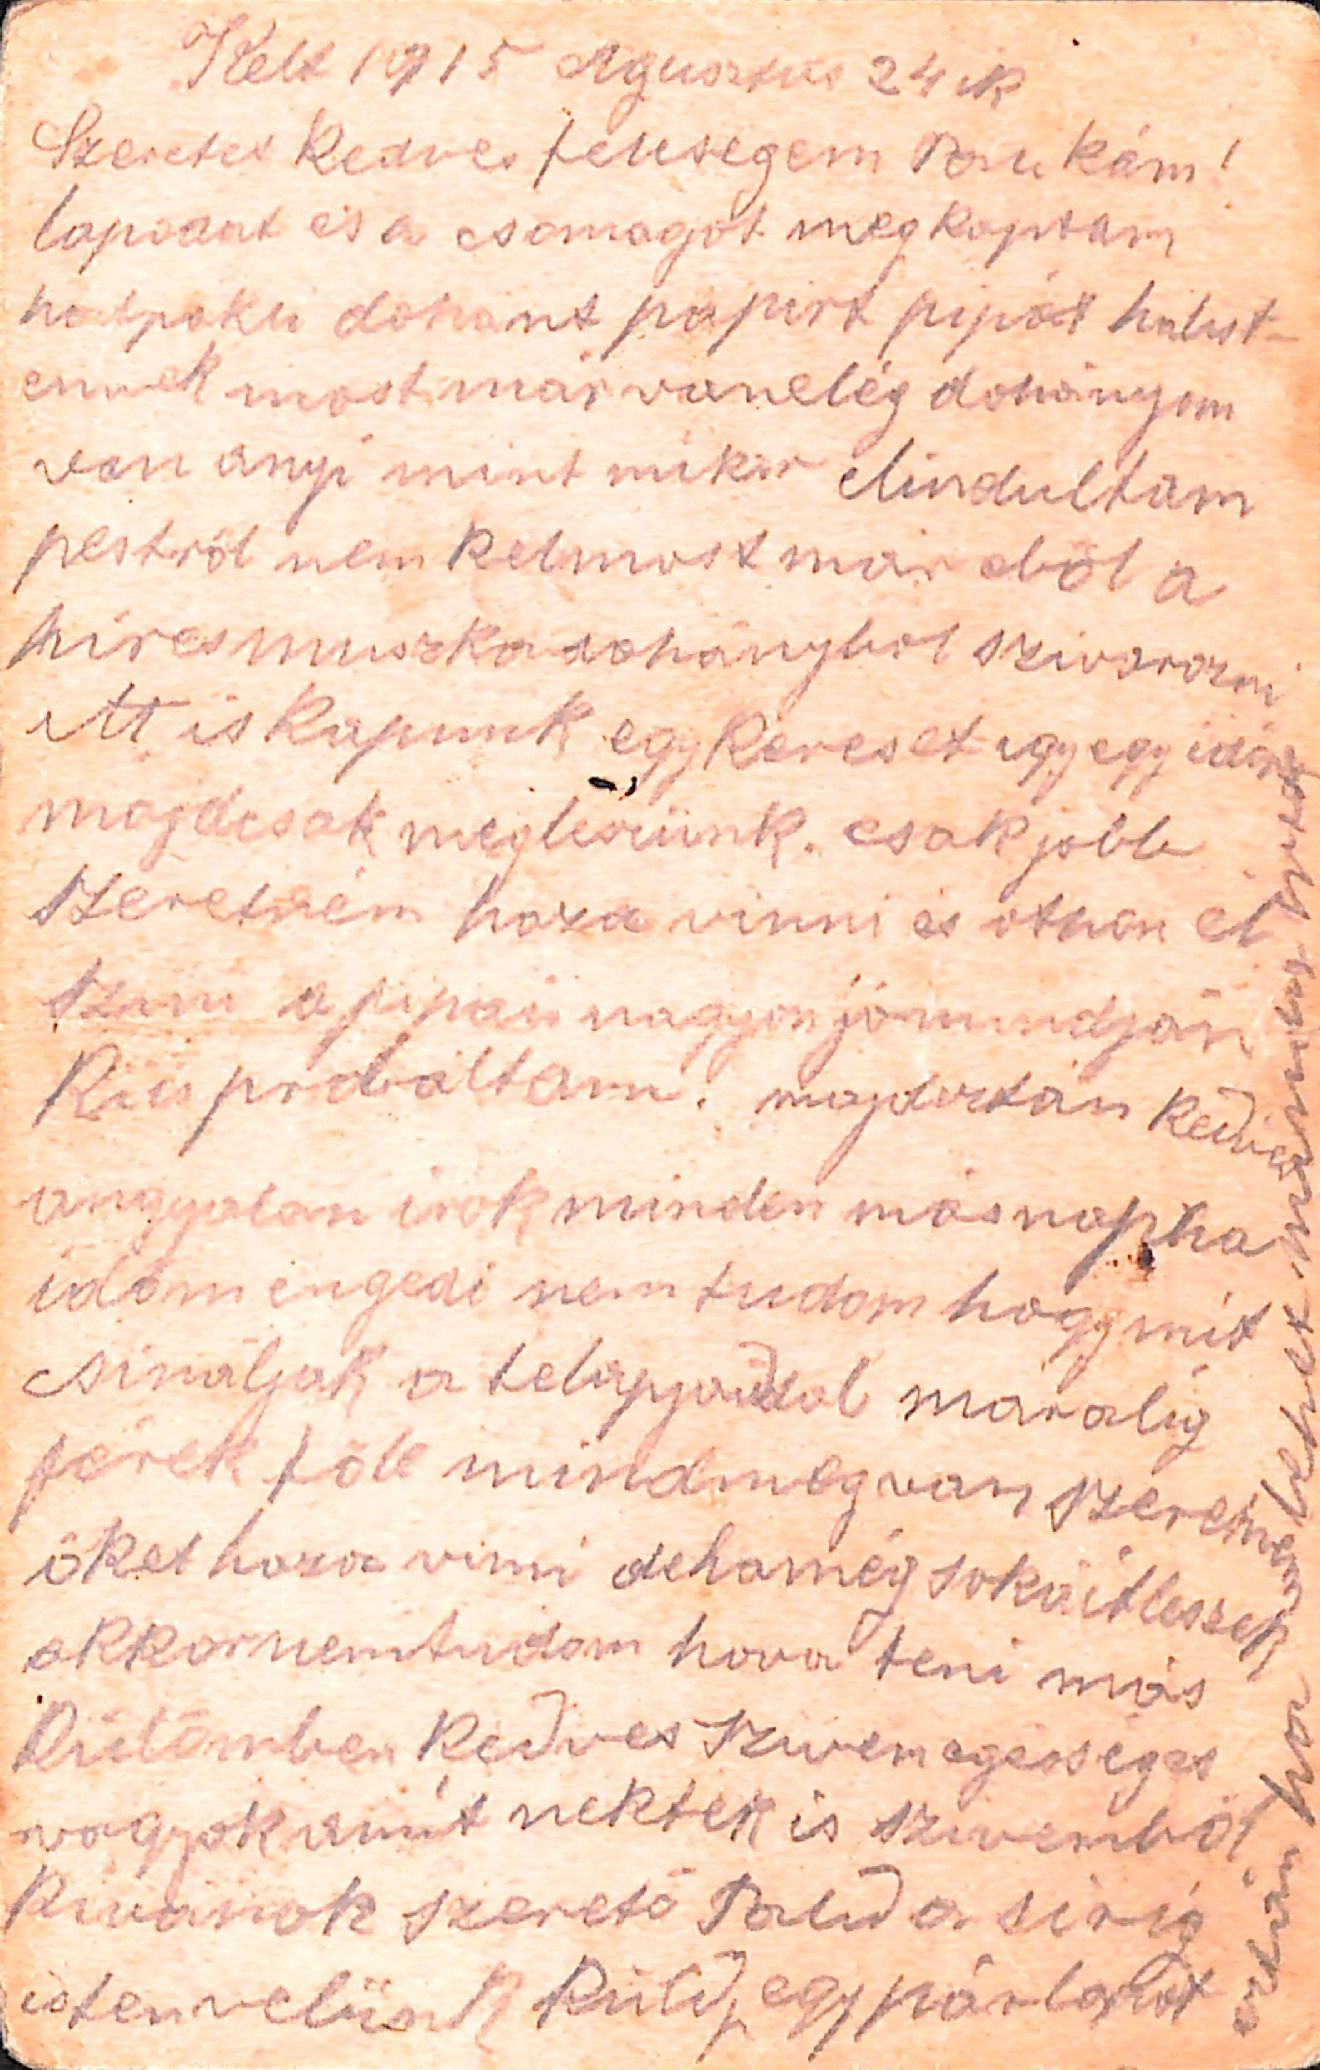 Kelt 1915 Agusztus 24 ik
Szeretet Kedves feleségem Paukám!
lapodat és a csomagot megkaptam
hatpakli dohant papirt pipát hálist-
ennek most már vanelég dohányom
van anyi mint mikor elindultam
peströl nem kelmost már eböl a
híresmuszkadohánybol szivarozni
itt is kapunk egykeveset igyegyidöre
majdcsak megleszünk. csakjobb
szeretném haza vinni és othon el
szivni a pipái nagyonjómindján
Kiis probáltam. majdosztán Kedves
angyalom irok minden másnap ha
idöm engedi nemtudom hogymit
csináljak a lapjaiddal máralig
férek föle mindmegvan szeretném
öket haza vinni dehamég sokáitleszek
akkornemtudom hova teni más
Külömben Kedves Szivem egésséges
vagyok amit nektek is szivemböl
kivánok szeretö Palid a sirig
istenvelünk Küldj egypárlapot
osztán ha lehet mármint